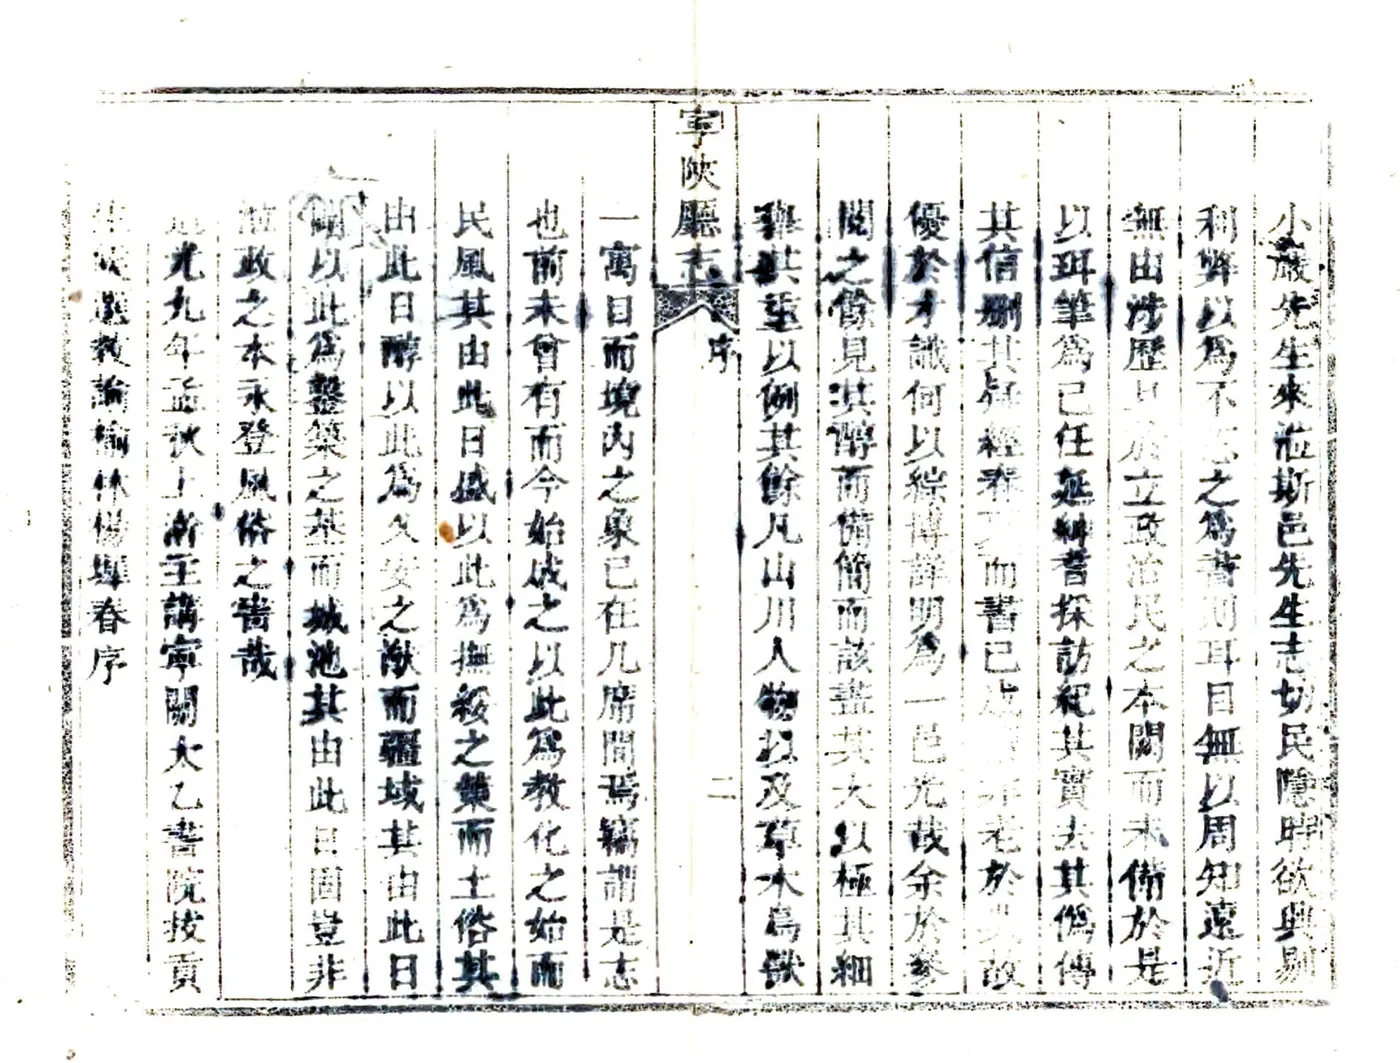 小巖先生來涖斯邑先生志切民隱時欲興剔
利弊以爲不志之爲書則耳目無以周知遠近
無由涉歷且於立政治民之本闕而未備於是
以珥筆爲己任延耕耆採訪紀其實去其僞傳
其信刪其疑經春而書已成非老於典故
優於才識何以綜博詳明爲一邑光哉余於參
閱之餘見其博而備簡而該盡其大以極其細
舉其重以例其餘凡山川人物以及草木鳥獸
寧陝廳志 序 二
一寓目而境內之象已在几席間焉竊謂是志
也前未曾有而今始成之以此爲教化之始而
民風其由此日盛以此爲撫綏之策而土俗其
由此日醇以此爲久安之猷而疆域其由此日
以此爲鑿築之基而城池其由此日固豈非
涖政之本永登風俗之書哉
道光九年孟秋上澣主講寧關太乙書院拔貢
生候選教諭榆林楊墀春序